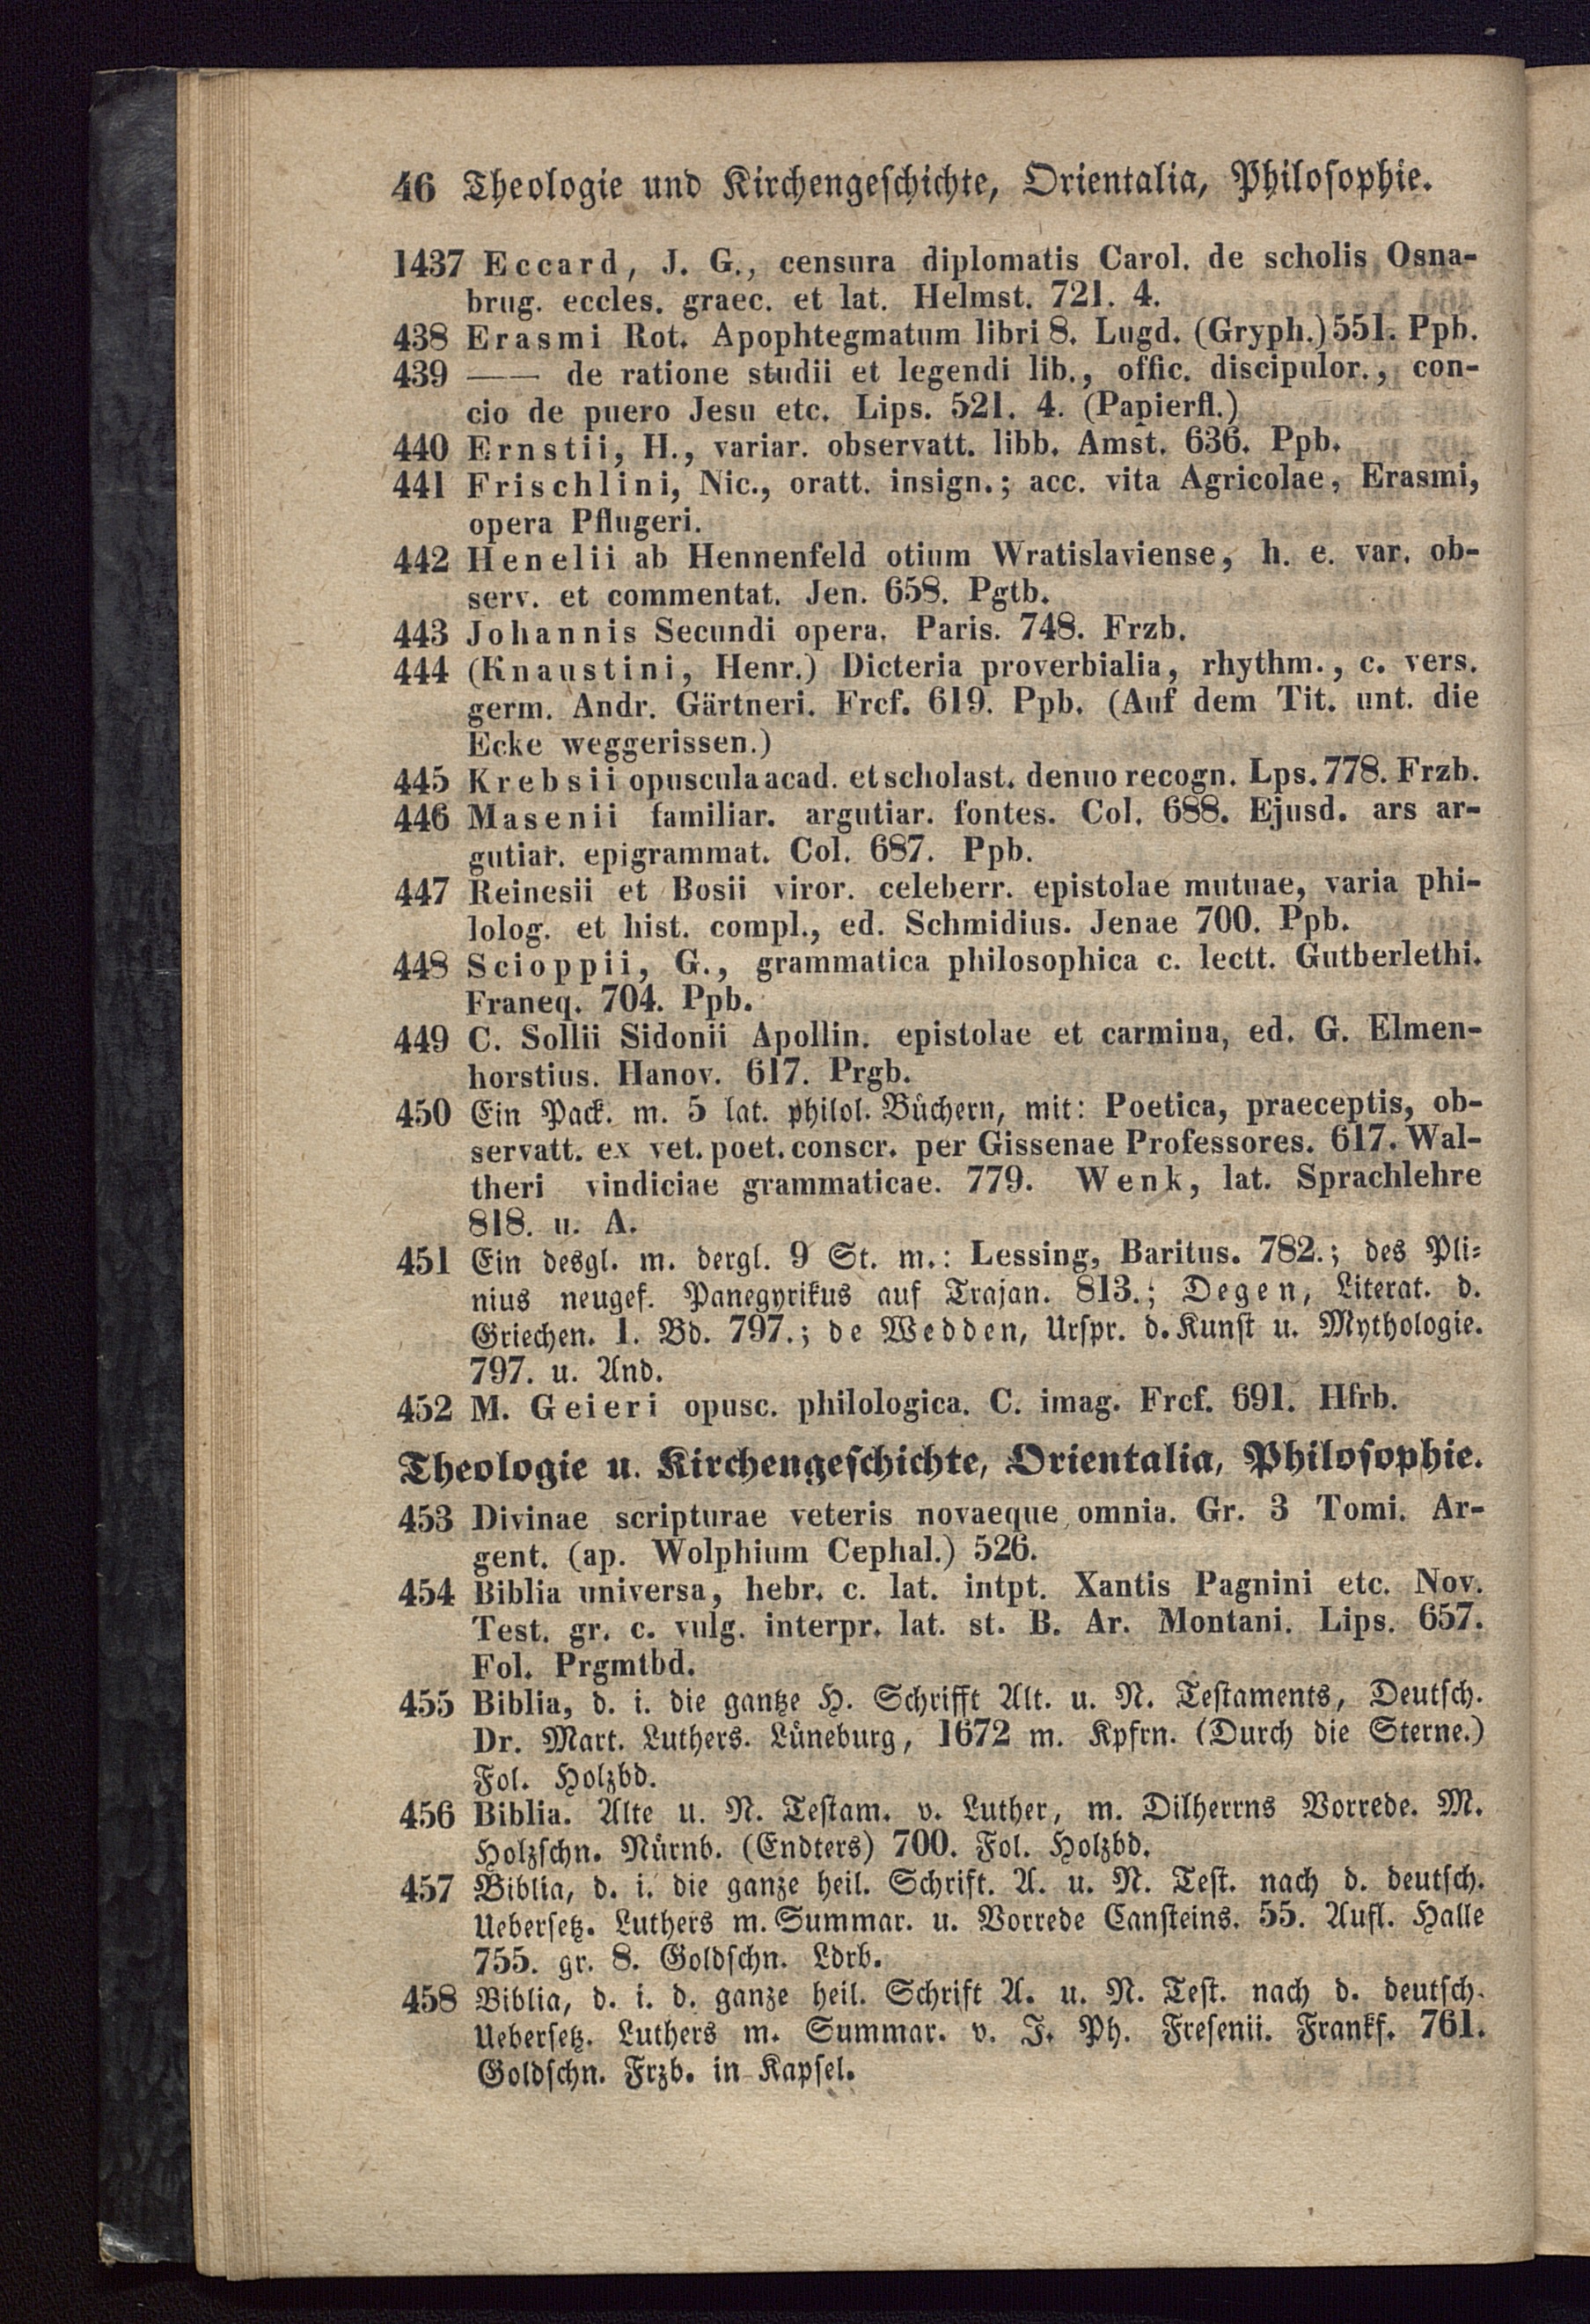 46 Theologie und Kirchengeschichte, Orientalia, Philosophie.
1437 Eccard, J. G., censura diplomatis Carol. de scholis Osna-
brug. eccles. graec. et lat. Helmst. 721. 4.
438 Erasmi Rot. Apophtegmatum libri 8. Lugd. (Gryph.) 551. Ppb.
439 —— de ratione studii et legendi lib., offic. discipulor., con-
cio de puero Jesu etc. Lips. 521. 4. (Papierfl.)
440 Ernstii, H., variar. observatt. libb. Amst. 636. Ppb.
441 Frischlini, Nic., oratt. insign.; acc. vita Agricolae, Erasmi,
opera Pflugeri.
442 Henelii ab Hennenfeld otium Wratislaviense, h. e. var. ob-
serv. et commentat. Jen. 658. Pgtb.
443 Johannis Secundi opera. Paris. 748. Frzb.
444 (Knaustini, Henr.) Dicteria proverbialia, rhythm., c. vers.
germ. Andr. Gärtneri. Frcf. 619. Ppb. (Auf dem Tit. unt. die
Ecke weggerissen.)
445 Krebsii opuscula acad. et scholast. denuo recogn. Lps. 778. Frzb.
446 Masenii familiar. argutiar. fontes. Col. 688. Ejusd. ars ar-
gutiar. epigrammat. Col. 687. Ppb.
447 Reinesii et Bosii viror. celeberr. epistolae mutuae, varia phi-
lolog. et hist. compl., ed. Schmidius. Jenae 700. Ppb.
448 Scioppii, G., grammatica philosophica c. lectt. Gutberlethi.
Franeq. 704. Ppb.
449 C. Sollii Sidonii Apollin. epistolae et carmina, ed. G. Elmen-
horstius. Hanov. 617. Prgb.
450 Ein Pack. m. 5 lat. philol. Büchern, mit: Poetica, praeceptis, ob-
servatt. ex vet. poet. conscr. per Gissenae Professores. 617. Wal-
theri vindiciae grammaticae. 779. Wenk, lat. Sprachlehre
818. u. A.
451 Ein desgl. m. dergl. 9 St. m.: Lessing, Baritus. 782.; des Pli-
nius neugef. Panegyrikus auf Trajan. 813.; Degen, Literat. d.
Griechen. 1. Bd. 797.; de Wedden, Urspr. d. Kunst u. Mythologie.
797. u. And.
452 M. Geieri opusc. philologica. C. imag. Frcf. 691. Hfrb.
Theologie u. Kirchengeschichte, Orientalia, Philosophie.
453 Divinae scripturae veteris novaeque omnia. Gr. 3 Tomi. Ar-
gent. (ap. Wolphium Cephal.) 526.
454 Biblia universa, hebr. c. lat. intpt. Xantis Pagnini etc. Nov.
Test. gr. c. vulg. interpr. lat. st. B. Ar. Montani. Lips. 657.
Fol. Prgmtbd.
455 Biblia, d. i. die gantze H. Schrifft Alt. u. N. Testaments, Deutsch.
Dr. Mart. Luthers. Lüneburg, 1672 m. Kpfrn. (Durch die Sterne.)
Fol. Holzbd.
456 Biblia. Alte u. N. Testam. v. Luther, m. Dilherrns Vorrede. M.
Holzschn. Nürnb. (Endters) 700. Fol. Holzbd.
457 Biblia, d. i. die ganze heil. Schrift. A. u. N. Test. nach d. deutsch.
Uebersetz. Luthers m. Summar. u. Vorrede Cansteins. 55. Aufl. Halle
755. gr. 8. Goldschn. Ldrb.
458 Biblia, d. i. d. ganze heil. Schrift A. u. N. Test. nach d. deutsch.
Uebersetz. Luthers m. Summar. v. J. Ph. Fresenii. Frankf. 761.
Goldschn. Frzb. in Kapsel.